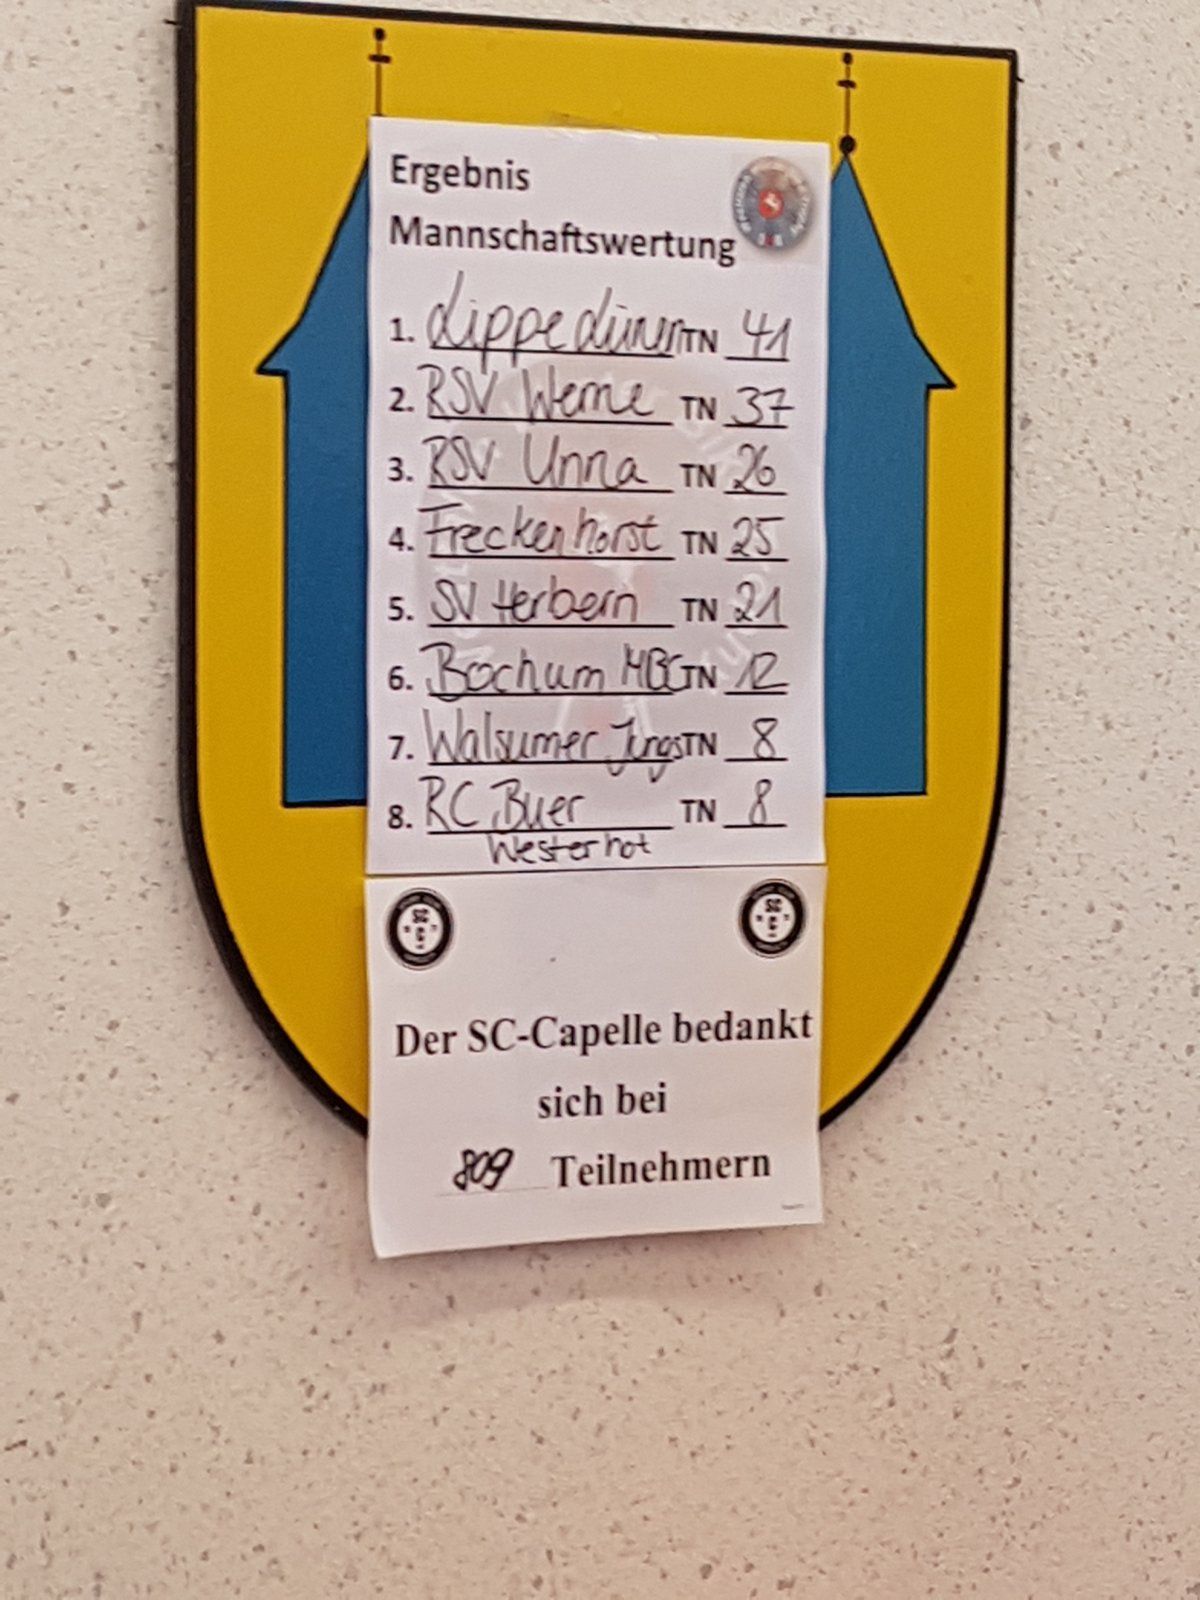 Ergebnis
Mannschaftswertung
1. Lippe Lünen TN 41
2. RSV Werne TN 37
3. RSV Unna TN 26
4. Freckenhorst TN 25
5. SV Herbern TN 21
6. Bochum MBC TN 12
7. Walsumer Jungs TN 8
8. RC Buer TN 8
Westerhot
SC
SC
Der SC-Capelle bedankt
sich bei
809 Teilnehmern